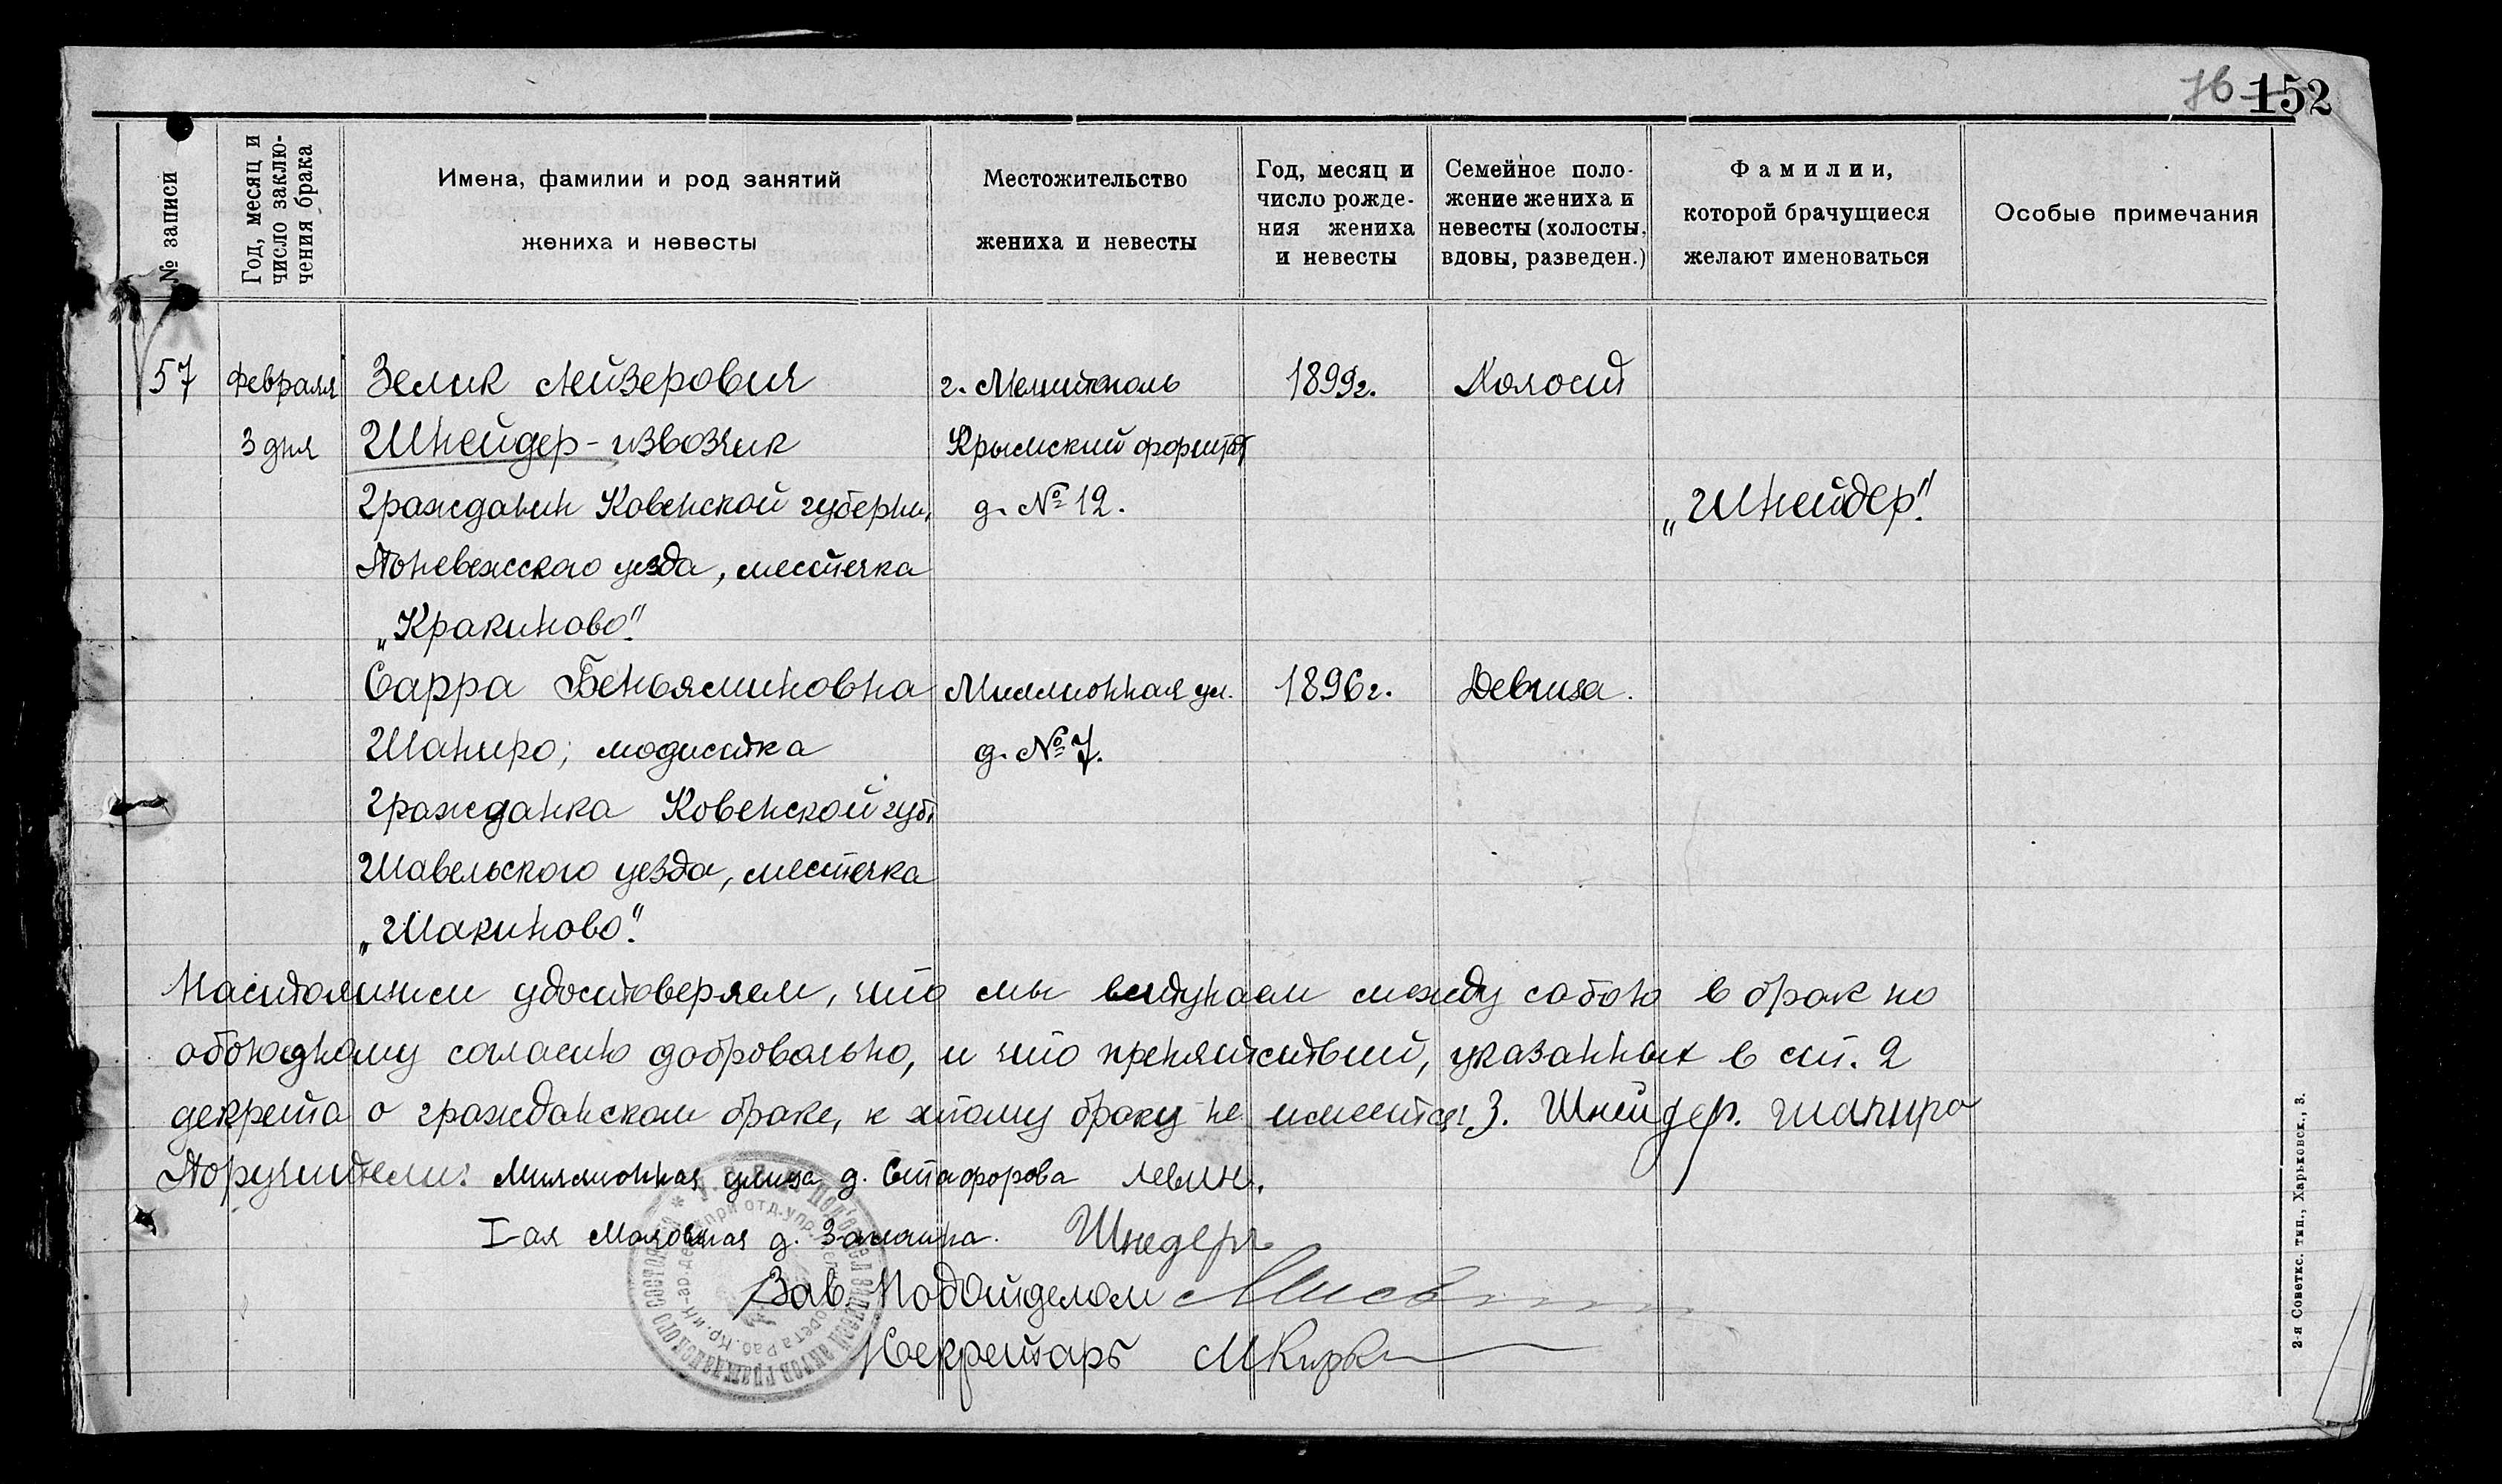 76 152
№ записи
Год, месяц и число заклю-
чения брака
Имена, фамилии и род занятий
жениха и невесты
Местожительство
жениха и невесты
Год, месяц и
число рожде-
ния жениха
и невесты
Семейное поло-
жение жениха и
невесты (холосты,
вдовы, разведен.)
Фамилии,
которой брачущиеся
желают именоваться
Особые примечания
57 Февраля Зелик Лейзерович г. Мелитополь 1899г. Холост
3 дня Шнейдер - извозчик Крымский форштат
Гражданин Ковенской губерни, д. № 12. „Шнейдер".
Поневежского уезда, местечка
„Кракиново".
Сарра Беньяминовна Миллионная ул. 1896г. Девица.
Шапиро; модистка д. № 7.
Гражданка Ковенской губ.
Шавельского уезда, местечка
„Шакиново".
Настоящим удостоверяем, что мы вступаем между собою в брак по
обоюдному согласию добровольно, и что препятствий, указанных в ст. 2
декрета о гражданском браке, к этому браку не имеется: З. Шнейдер. Шапиро
Поручители: Миллионная улица д. Стафорова Левин.
I-ая д. Шнедер
Зав. Подотделом
Секретарь
2-я Советск. тип., Харьковск., 3.